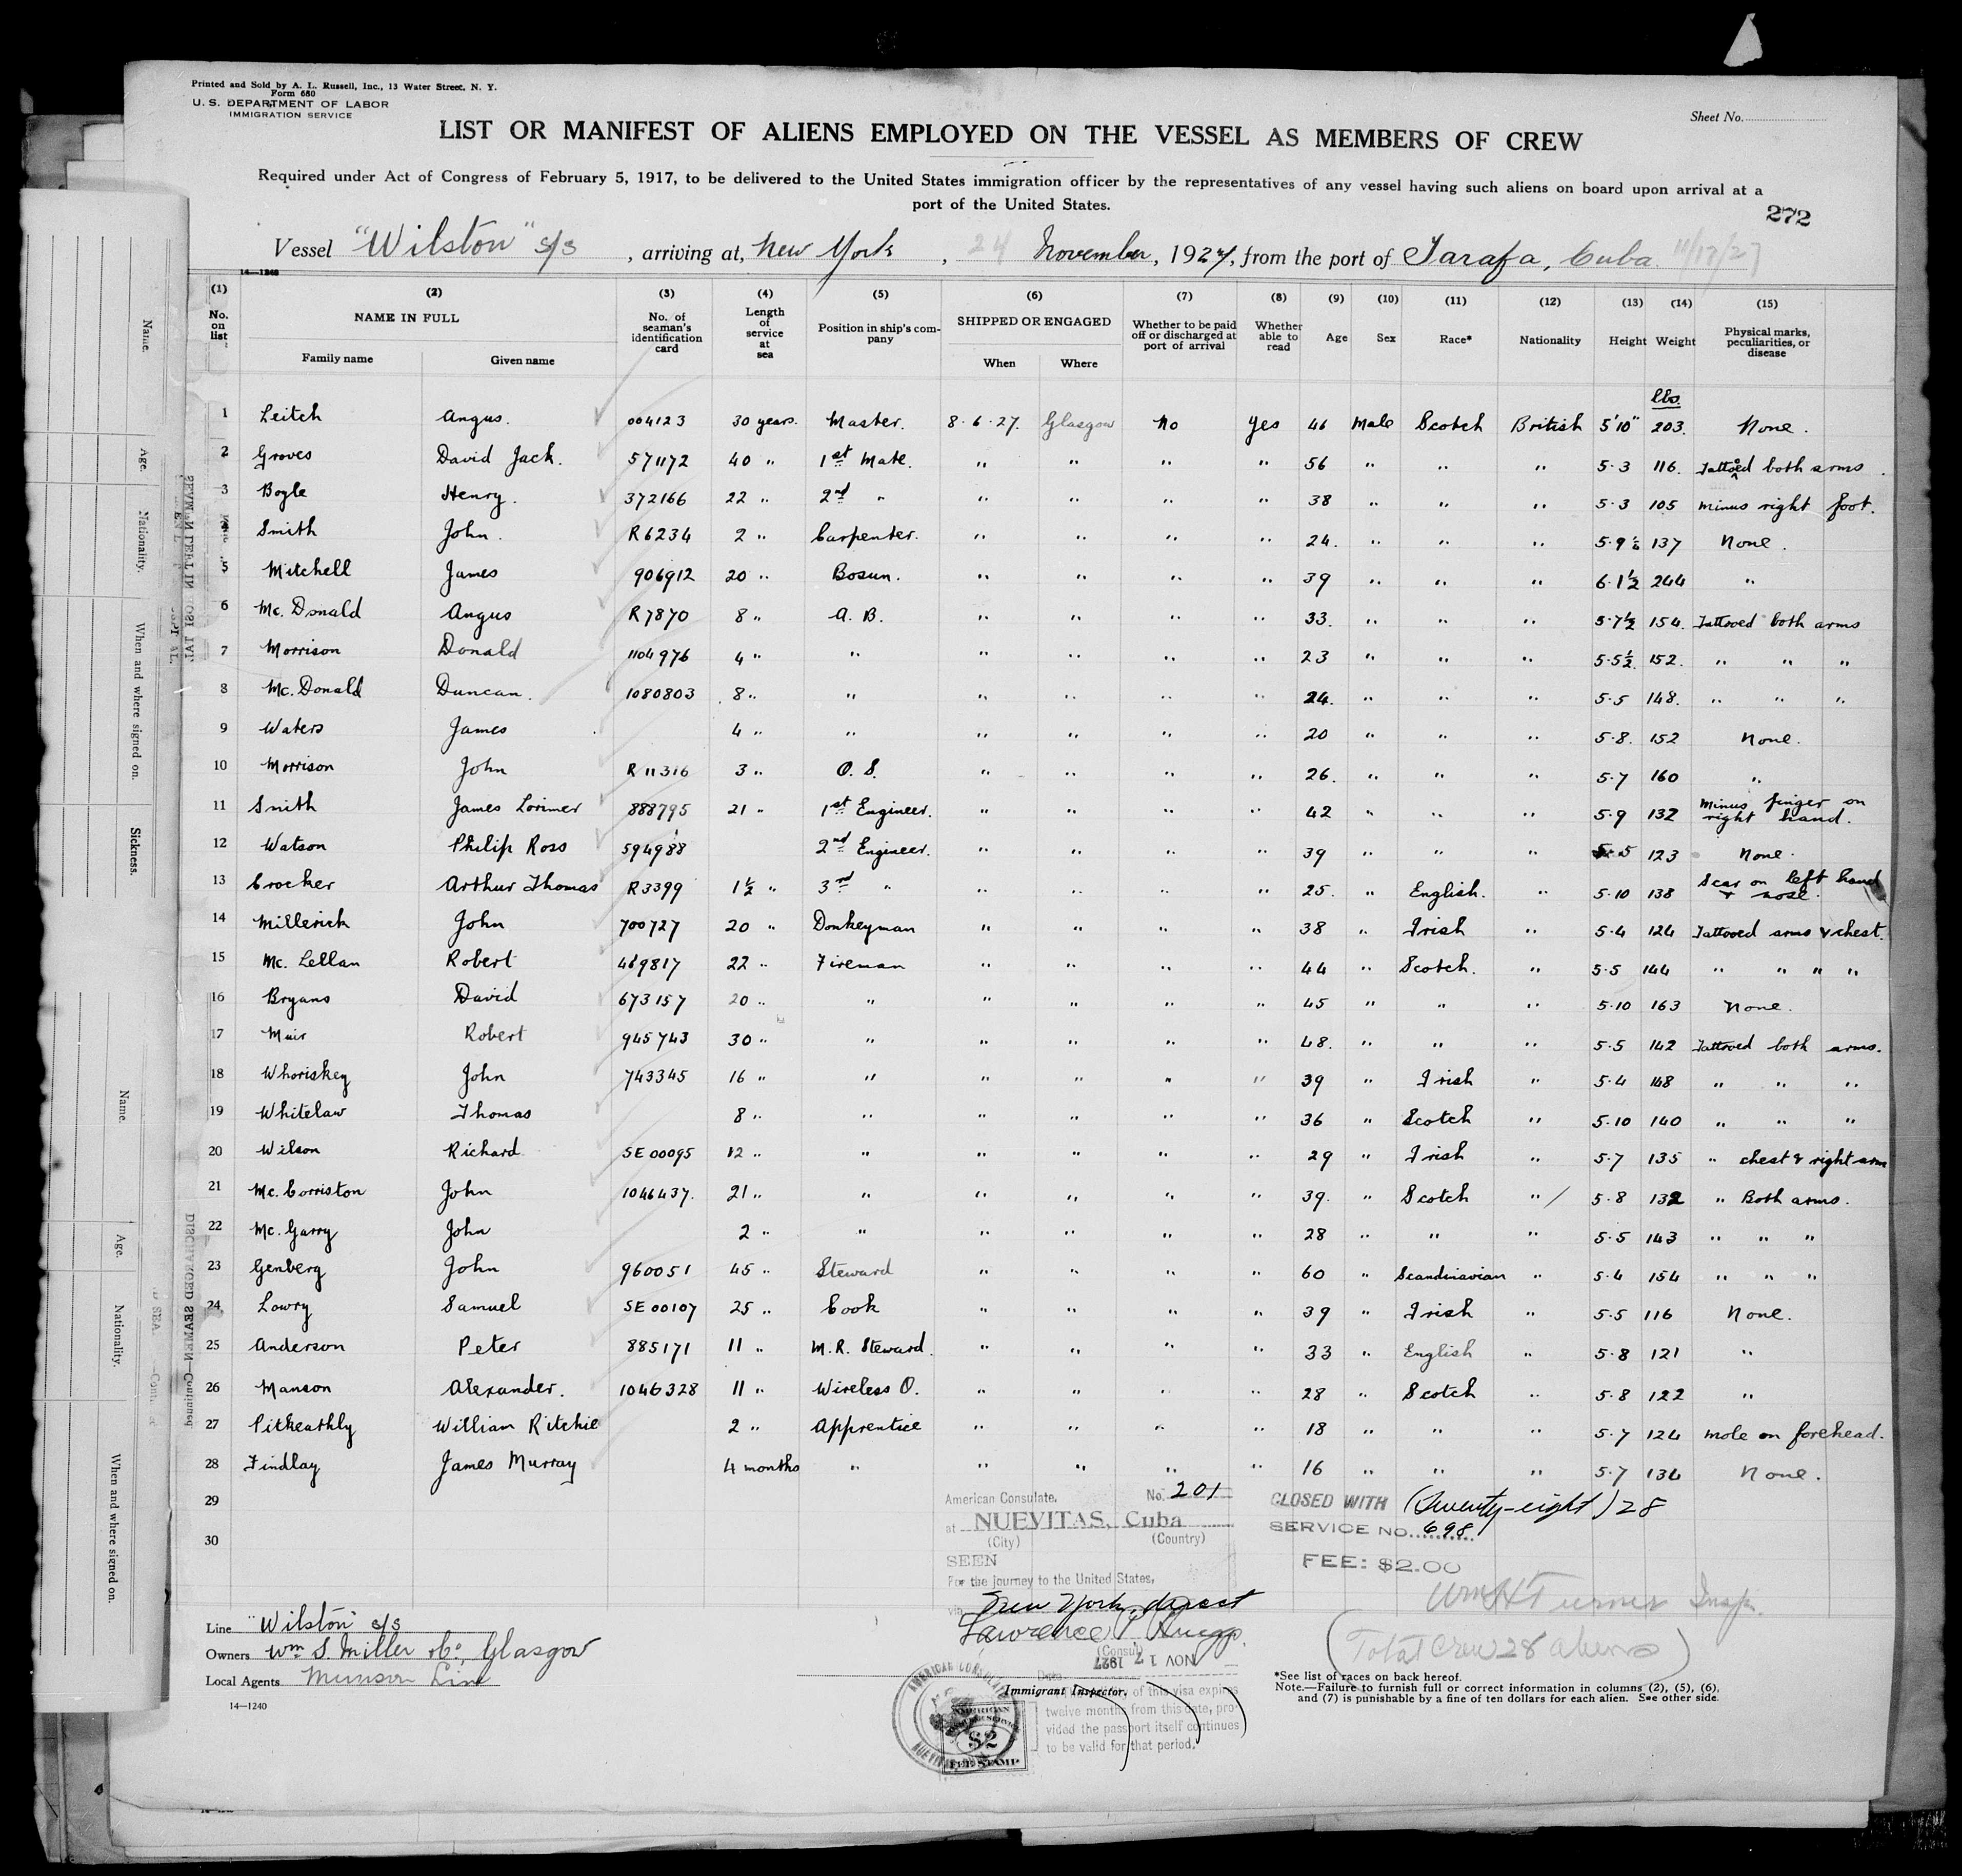 Printed and Sold by A. L. Russell, Inc., 13 Water Street, N. Y.
Form 680
U. S. DEPARTMENT OF LABOR
IMMIGRATION SERVICE
Sheet No.
LIST OR MANIFEST OF ALIENS EMPLOYED ON THE VESSEL AS MEMBERS OF CREW
Required under Act of Congress of February 5, 1917, to be delivered to the United States immigration officer by the representatives of any vessel having such aliens on board upon arrival at a
port of the United States.
272
Vessel "Wilston" S/S, arriving at, New York, 24 November, 1927, from the port of Tarafa, Cuba. 11/17/27
14—1240
(1) (2) (3) (4) (5) (6) (7) (8) (9) (10) (11) (12) (13) (14) (15)
No. on list NAME IN FULL Family name Given name No. of seaman's identification card Length of service at sea Position in ship's company SHIPPED OR ENGAGED When Where Whether to be paid off or discharged at port of arrival Whether able to read Age Sex Race* Nationality Height Weight Physical marks, peculiarities, or disease
lbs.
1 Leitch Angus. 004123 30 years. Master. 8.6.27. Glasgow No Yes 46 Male Scotch British 5'10" 203. None.
2 Groves David Jack. 571172 40 " 1st Mate. " " " " 56 " " " 5.3 116. Tattooed both arms.
3 Boyle Henry. 372166 22 " 2nd " " " " " 38 " " " 5.3 105 minus right foot.
4 Smith John. R6234 2 " Carpenter. " " " " 24. " " " 5.9½ 137 None.
5 Mitchell James 906912 20 " Bosun. " " " " 39 " " " 6.1½ 244 "
6 Mc. Donald Angus R7870 8 " A. B. " " " " 33. " " " 5.7½ 154. Tattooed both arms
7 Morrison Donald 1104976 4 " " " " " " 23 " " " 5.5½. 152. " " "
8 Mc. Donald Duncan. 1080803 8 " " " " " " 24. " " " 5.5 148. " " "
9 Waters James 4 " " " " " " 20 " " " 5.8. 152 None.
10 Morrison John R11316 3 " O. S. " " " " 26. " " " 5.7 160 "
11 Smith James Lorimer 888795 21 " 1st Engineer. " " " " 42 " " " 5.9 132 Minus finger on right hand.
12 Watson Philip Ross 594988 2nd Engineer. " " " " 39 " " " 5.5 123 None.
13 Crocker Arthur Thomas R3399 1½ " 3rd " " " " " 25. " English. " 5.10 138 Scar on left hand & nose.
14 Millerick John 700727 20 " Donkeyman " " " " 38 " Irish " 5.4 124 Tattooed arms & chest.
15 Mc. Lellan Robert 469817 22 " Fireman " " " " 44 " Scotch. " 5.5 144 " " " "
16 Bryans David 673157 20 " " " " " " 45 " " " 5.10 163 None.
17 Muir Robert 945743 30 " " " " " " 48. " " " 5.5 142 Tattooed both arms.
18 Whoriskey John 743345 16 " " " " " " 39 " Irish " 5.4 148 " " "
19 Whitelaw Thomas 8 " " " " " " 36 " Scotch " 5.10 140 " " "
20 Wilson Richard SE00095 12 " " " " " " 29 " Irish " 5.7 135 " chest & right arm
21 Mc. Corriston John 1046437. 21 " " " " " " 39. " Scotch " / 5.8 132 " Both arms.
22 Mc. Garry John 2 " " " " " " 28 " " " 5.5 143 " " "
23 Genberg John 960051 45 " Steward " " " " 60 " Scandinavian " 5.4 154 " " "
24 Lowry Samuel SE00107 25 " Cook " " " " 39 " Irish " 5.5 116 None.
25 Anderson Peter 885171 11 " M. R. Steward. " " " " 33 " English " 5.8 121 "
26 Manson Alexander. 1046328 11 " Wireless O. " " " " 28 " Scotch " 5.8 122 "
27 Pitkeathly William Ritchie 2 " Apprentice " " " " 18 " " " 5.7 124 mole on forehead.
28 Findlay James Murray 4 months " " " " " 16 " " " 5.7 134 None.
29
30
American Consulate. No. 201
at NUEVITAS, Cuba
(City) (Country)
SEEN
For the journey to the United States,
via New York, direct
Lawrence P.
(Consul)
Date NOV 17 1927
CLOSED WITH (Twenty-eight) 28
SERVICE NO. 698
FEE: $2.00
Wm H Turner Insp.
(Total Crew 28 aliens)
Line "Wilston" S/S
Owners Wm. S. Miller & Co., Glasgow
Local Agents Munson Line
14—1240
Immigrant Inspector.
of this visa expires
twelve months from this date, pro-
vided the passport itself continues
to be valid for that period.
AMERICAN CONSULATE
NUEVITAS
AMERICAN
$2
FEE STAMP
*See list of races on back hereof.
Note.—Failure to furnish full or correct information in columns (2), (5), (6),
and (7) is punishable by a fine of ten dollars for each alien. See other side.
Name.
Age.
Nationality.
When and where signed on.
Sickness.
Name.
Age.
Nationality.
When and where signed on.
DISCHARGED SEAMEN—Continued